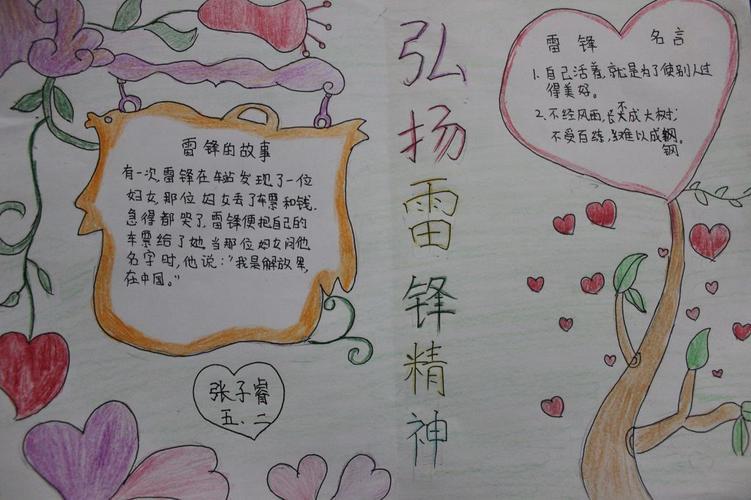 雷锋的故事
有一次,雷锋在车站发现了一位
妇女,那位妇女丢了车票和钱.
急得都哭了,雷锋便把自己的
车票给了她,当那位妇女问他
名字时,他说:"我是解放军,
在中国。"
张子睿
五、二
弘扬雷锋精神
雷锋 名言
1.自己活着,就是为了使别人过
得美好。
2.不经风雨,长不成大树;
不受百练,难以成钢。
钢